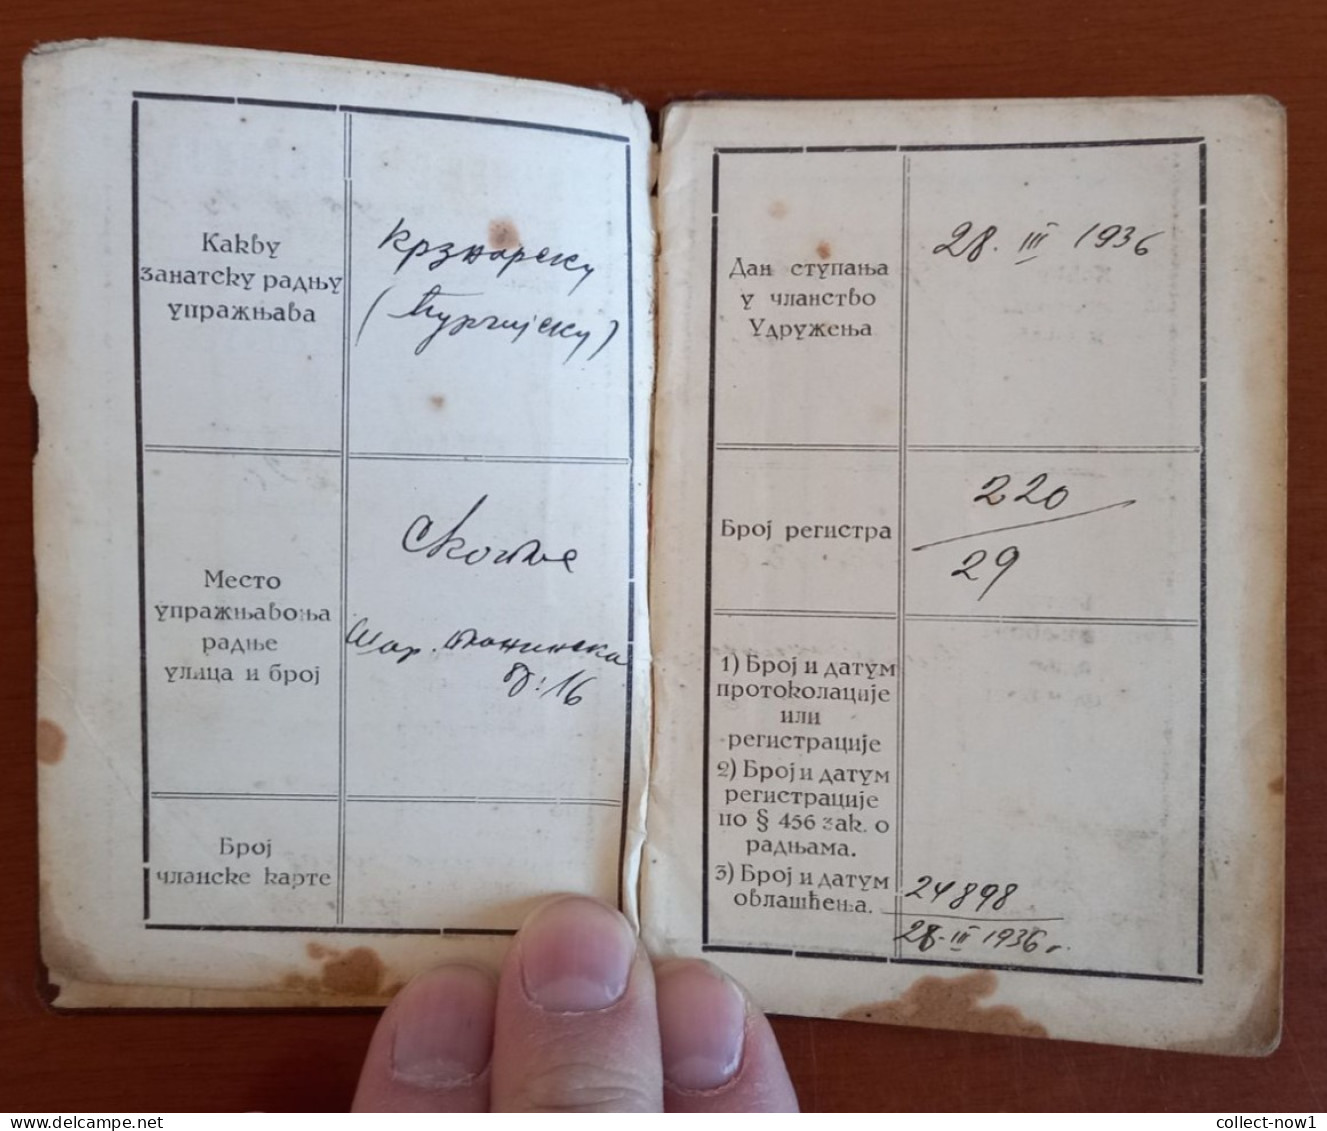 Какву
занатску радњу
упражњава
крзнарску
(ћурчијску)
Место
упражњавоња
радње
улица и број
Скопље
б: 16
Број
чланске карте
Дан ступања
у чланство
Удружења
28. III 1936
Број регистра
220
29
1) Број и датум
протоколације
или
регистрације
2) Број и датум
регистрације
по § 456 зак. о
радњама.
3) Број и датум
овлашћења.
24898
28-III 1936 г.
collect-now1